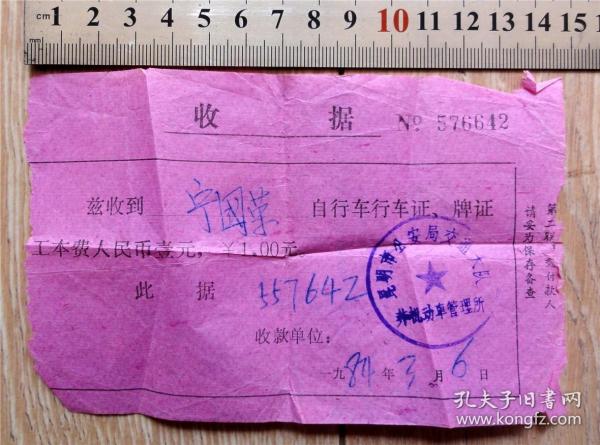 cm 1 2 3 4 5 6 7 8 9 10 11 12 13 14 15
收 据 № 576642
兹收到 宁国荣 自行车行车证、牌证
工本费人民币壹元，￥1.00元
此 据 557642
收款单位：
一九84年3月6日
昆明市公安局交通大队
非机动车管理所
第二联：交付款人
请妥为保存备查
孔夫子旧书网
www.kongfz.com